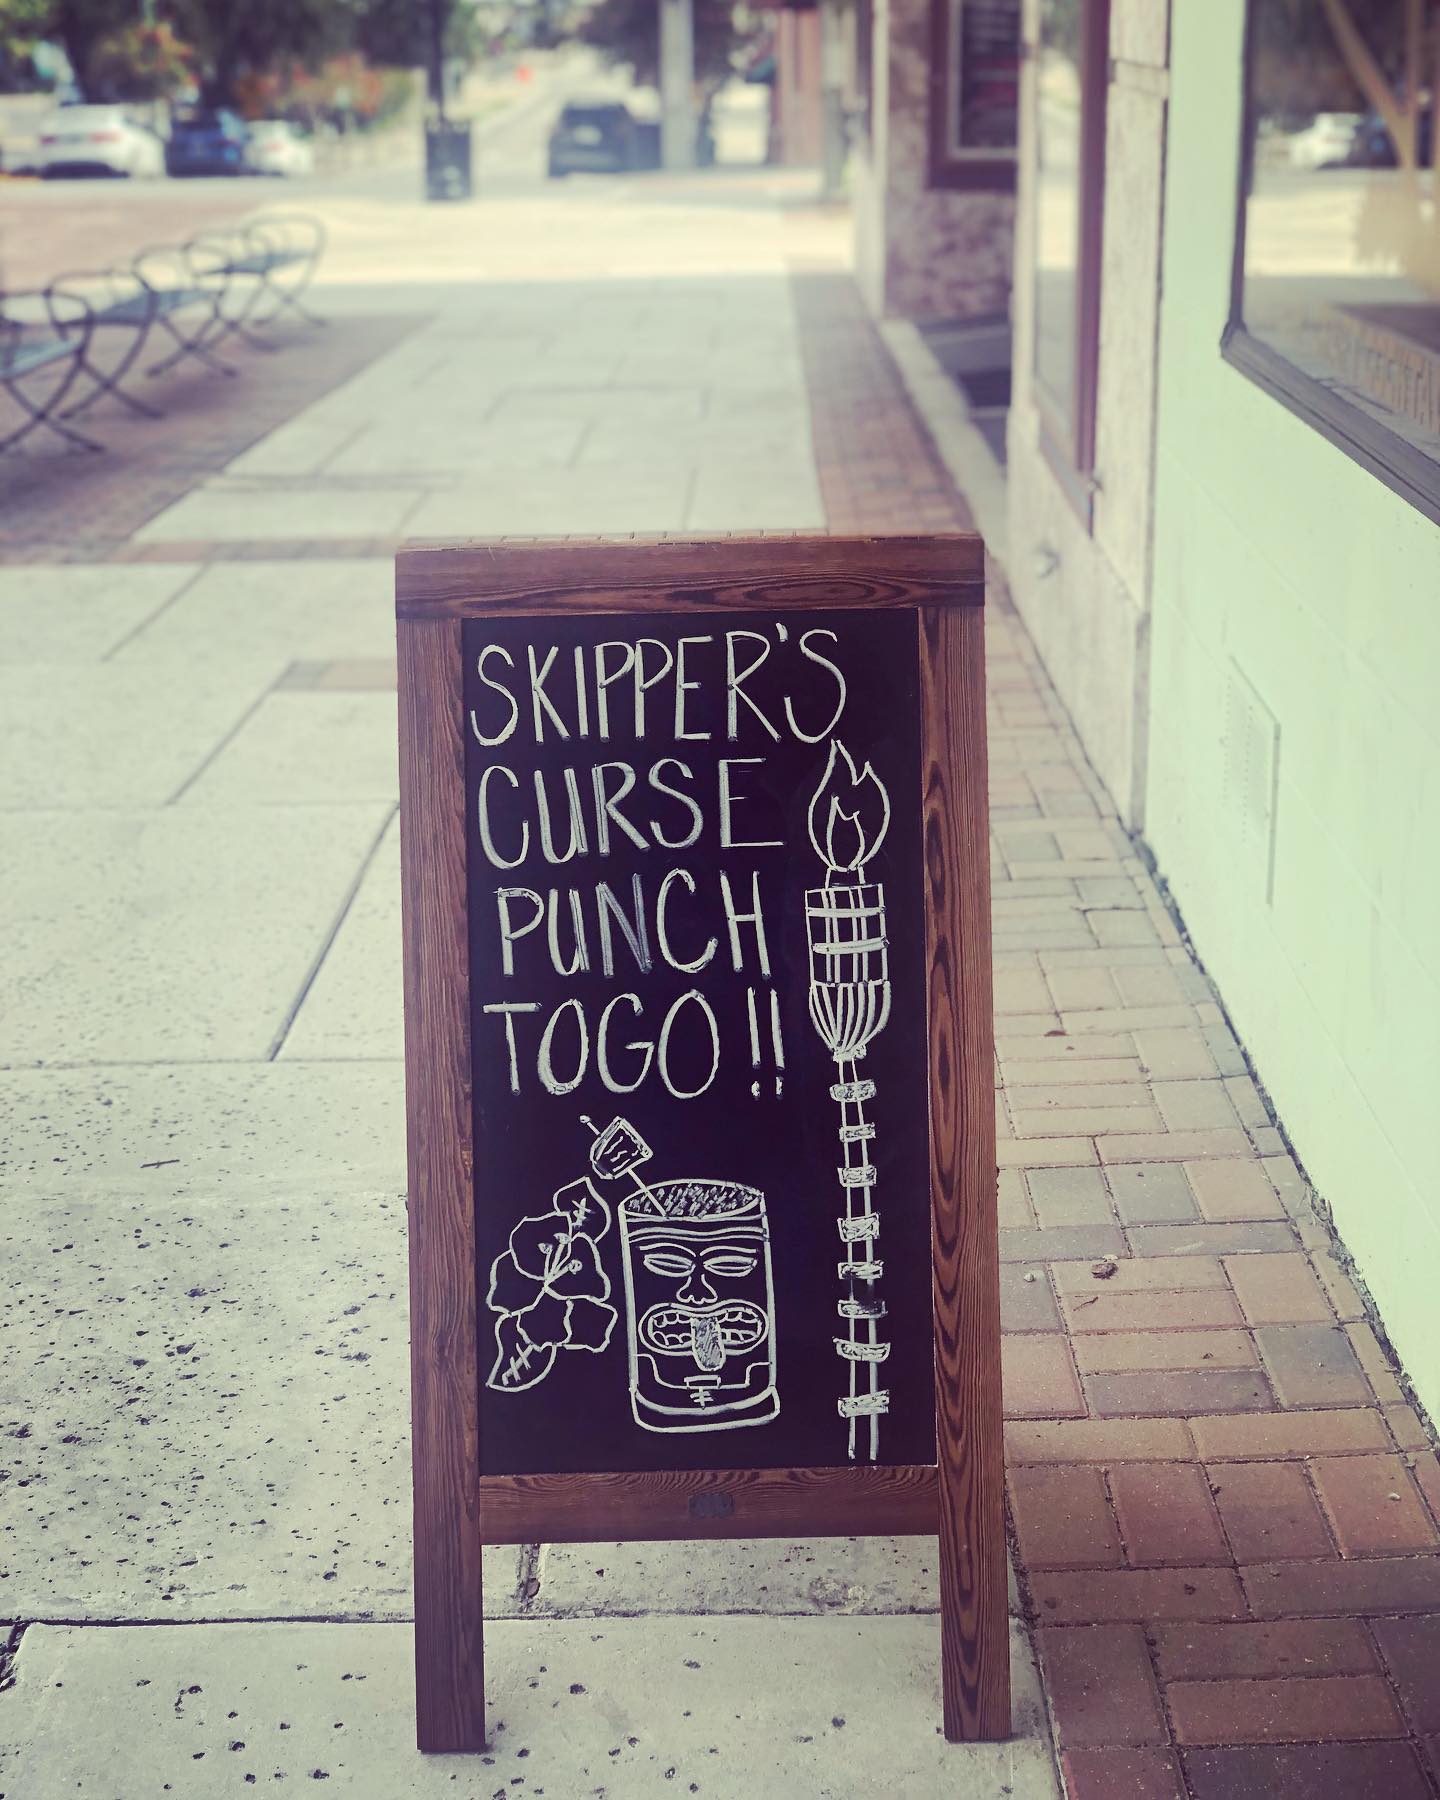 SKIPPER'S
CURSE
PUNCH
TOGO !!